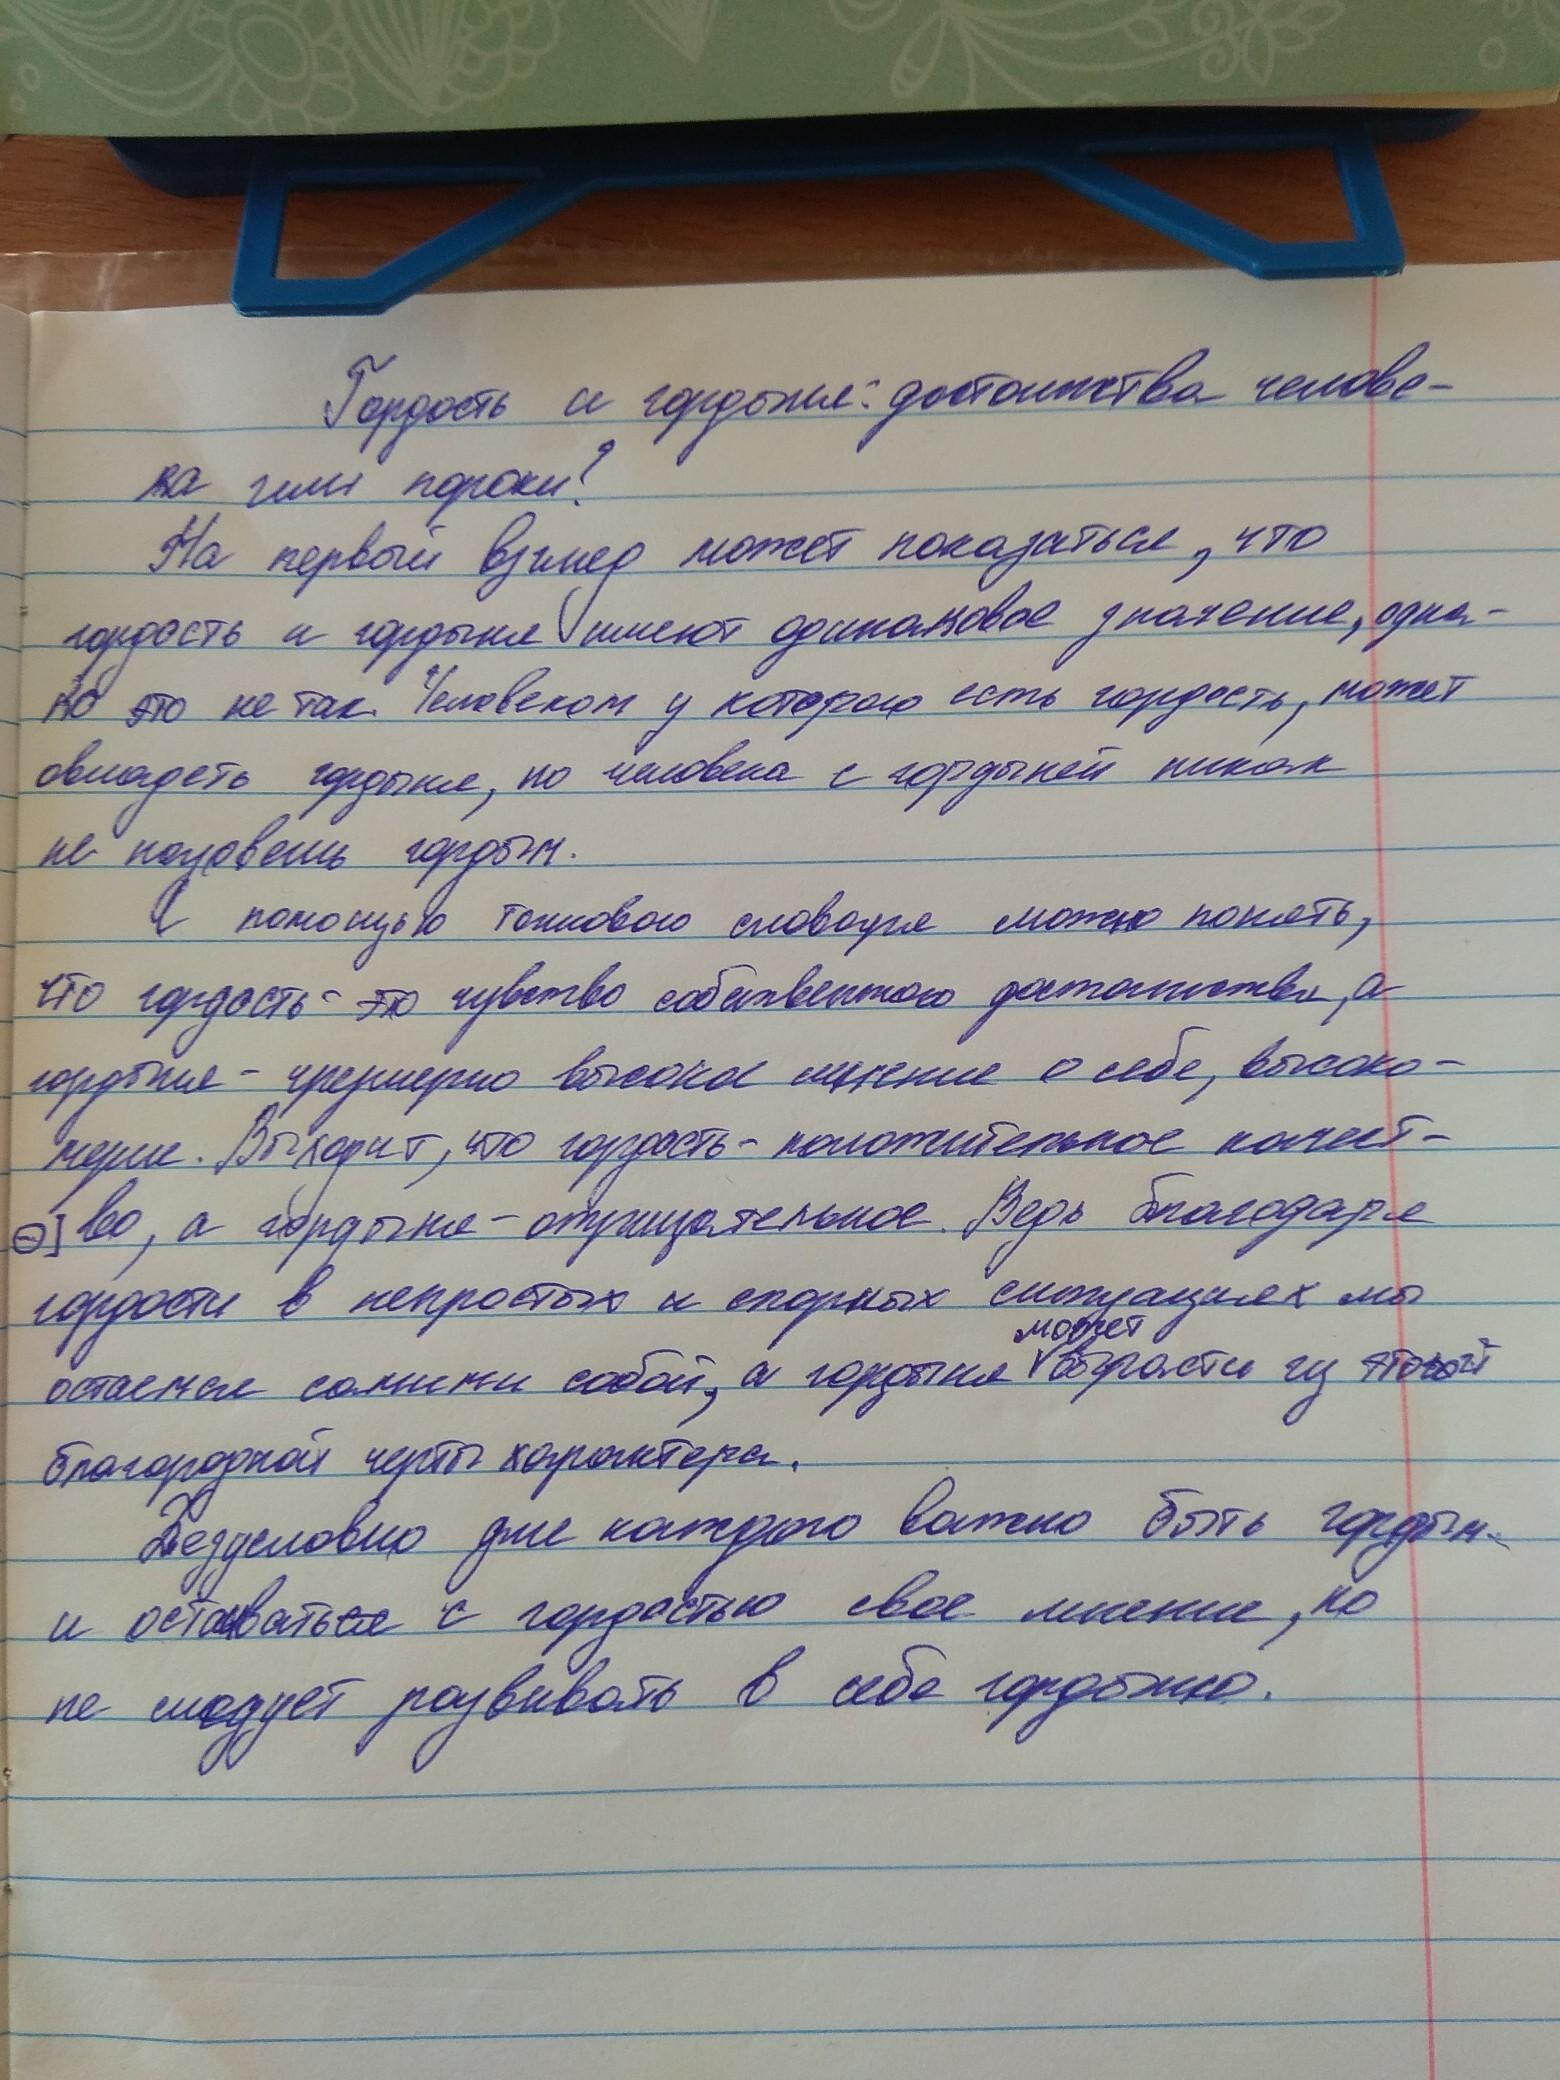 Гордость и гордыня: достоинства челове-
ка или пороки?
На первый взгляд может показаться, что
гордость и гордыня имеют одинаковое значение, одна-
ко это не так. Человеком у которого есть гордость, может
овладеть гордыня, но человека с гордыней никак
не назовешь гордым.
С помощью толкового словаря можно понять,
что гордость - это чувство собственного достоинства, а
гордыня - чрезмерно высокое мнение о себе, высоко-
мерие. Выходит, что гордость - положительное качест-
во, а гордыня - отрицательное. Ведь благодаря
гордости в непростых и спорных ситуациях мы
остаемся самими собой, а гордыня может вырасти из этой
благородной черты характера.
Безусловно для каждого важно быть гордым
и оставаться с гордостью свое мнение, но
не следует развивать в себе гордыню.